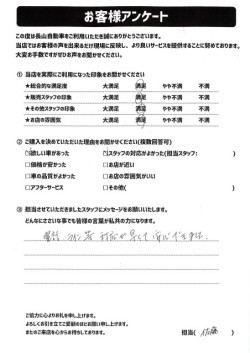 お客様アンケート
この度は長山自動車をご利用いただき誠にありがとうございます。
当店ではお客様の声を出来るだけ現場に反映し、より良いサービスを提供することに努めております。
大変お手数ですがぜひお声をお聞かせください。
① 当店を実際にご利用になった印象をお聞かせください
★総合的な満足度 大満足 満足 やや不満 不満
★販売スタッフの印象 大満足 満足 やや不満 不満
★その他スタッフの印象 大満足 満足 やや不満 不満
★お店の雰囲気 大満足 満足 やや不満 不満
② ご購入を決めていただいた理由をお聞かせください(複数回答可)
□欲しい車があった □スタッフの対応がよかった(担当スタッフ: )
□価格が安かった □お店が近い
□車の品質がよかった □お店の雰囲気がいい
□アフターサービス □その他( )
③ 担当させていただきましたスタッフにメッセージをお願いいたします。
どんなにささいな事でも皆様の言葉が私共の力になります。
電話 ライン等 対応が早くて安心できました。
ご協力に心よりお礼を申し上げます。
よろしくお引き立てご愛顧のほどお願い申し上げます。
またのご来店を心からお待ちしております。
担当( 佐藤 )